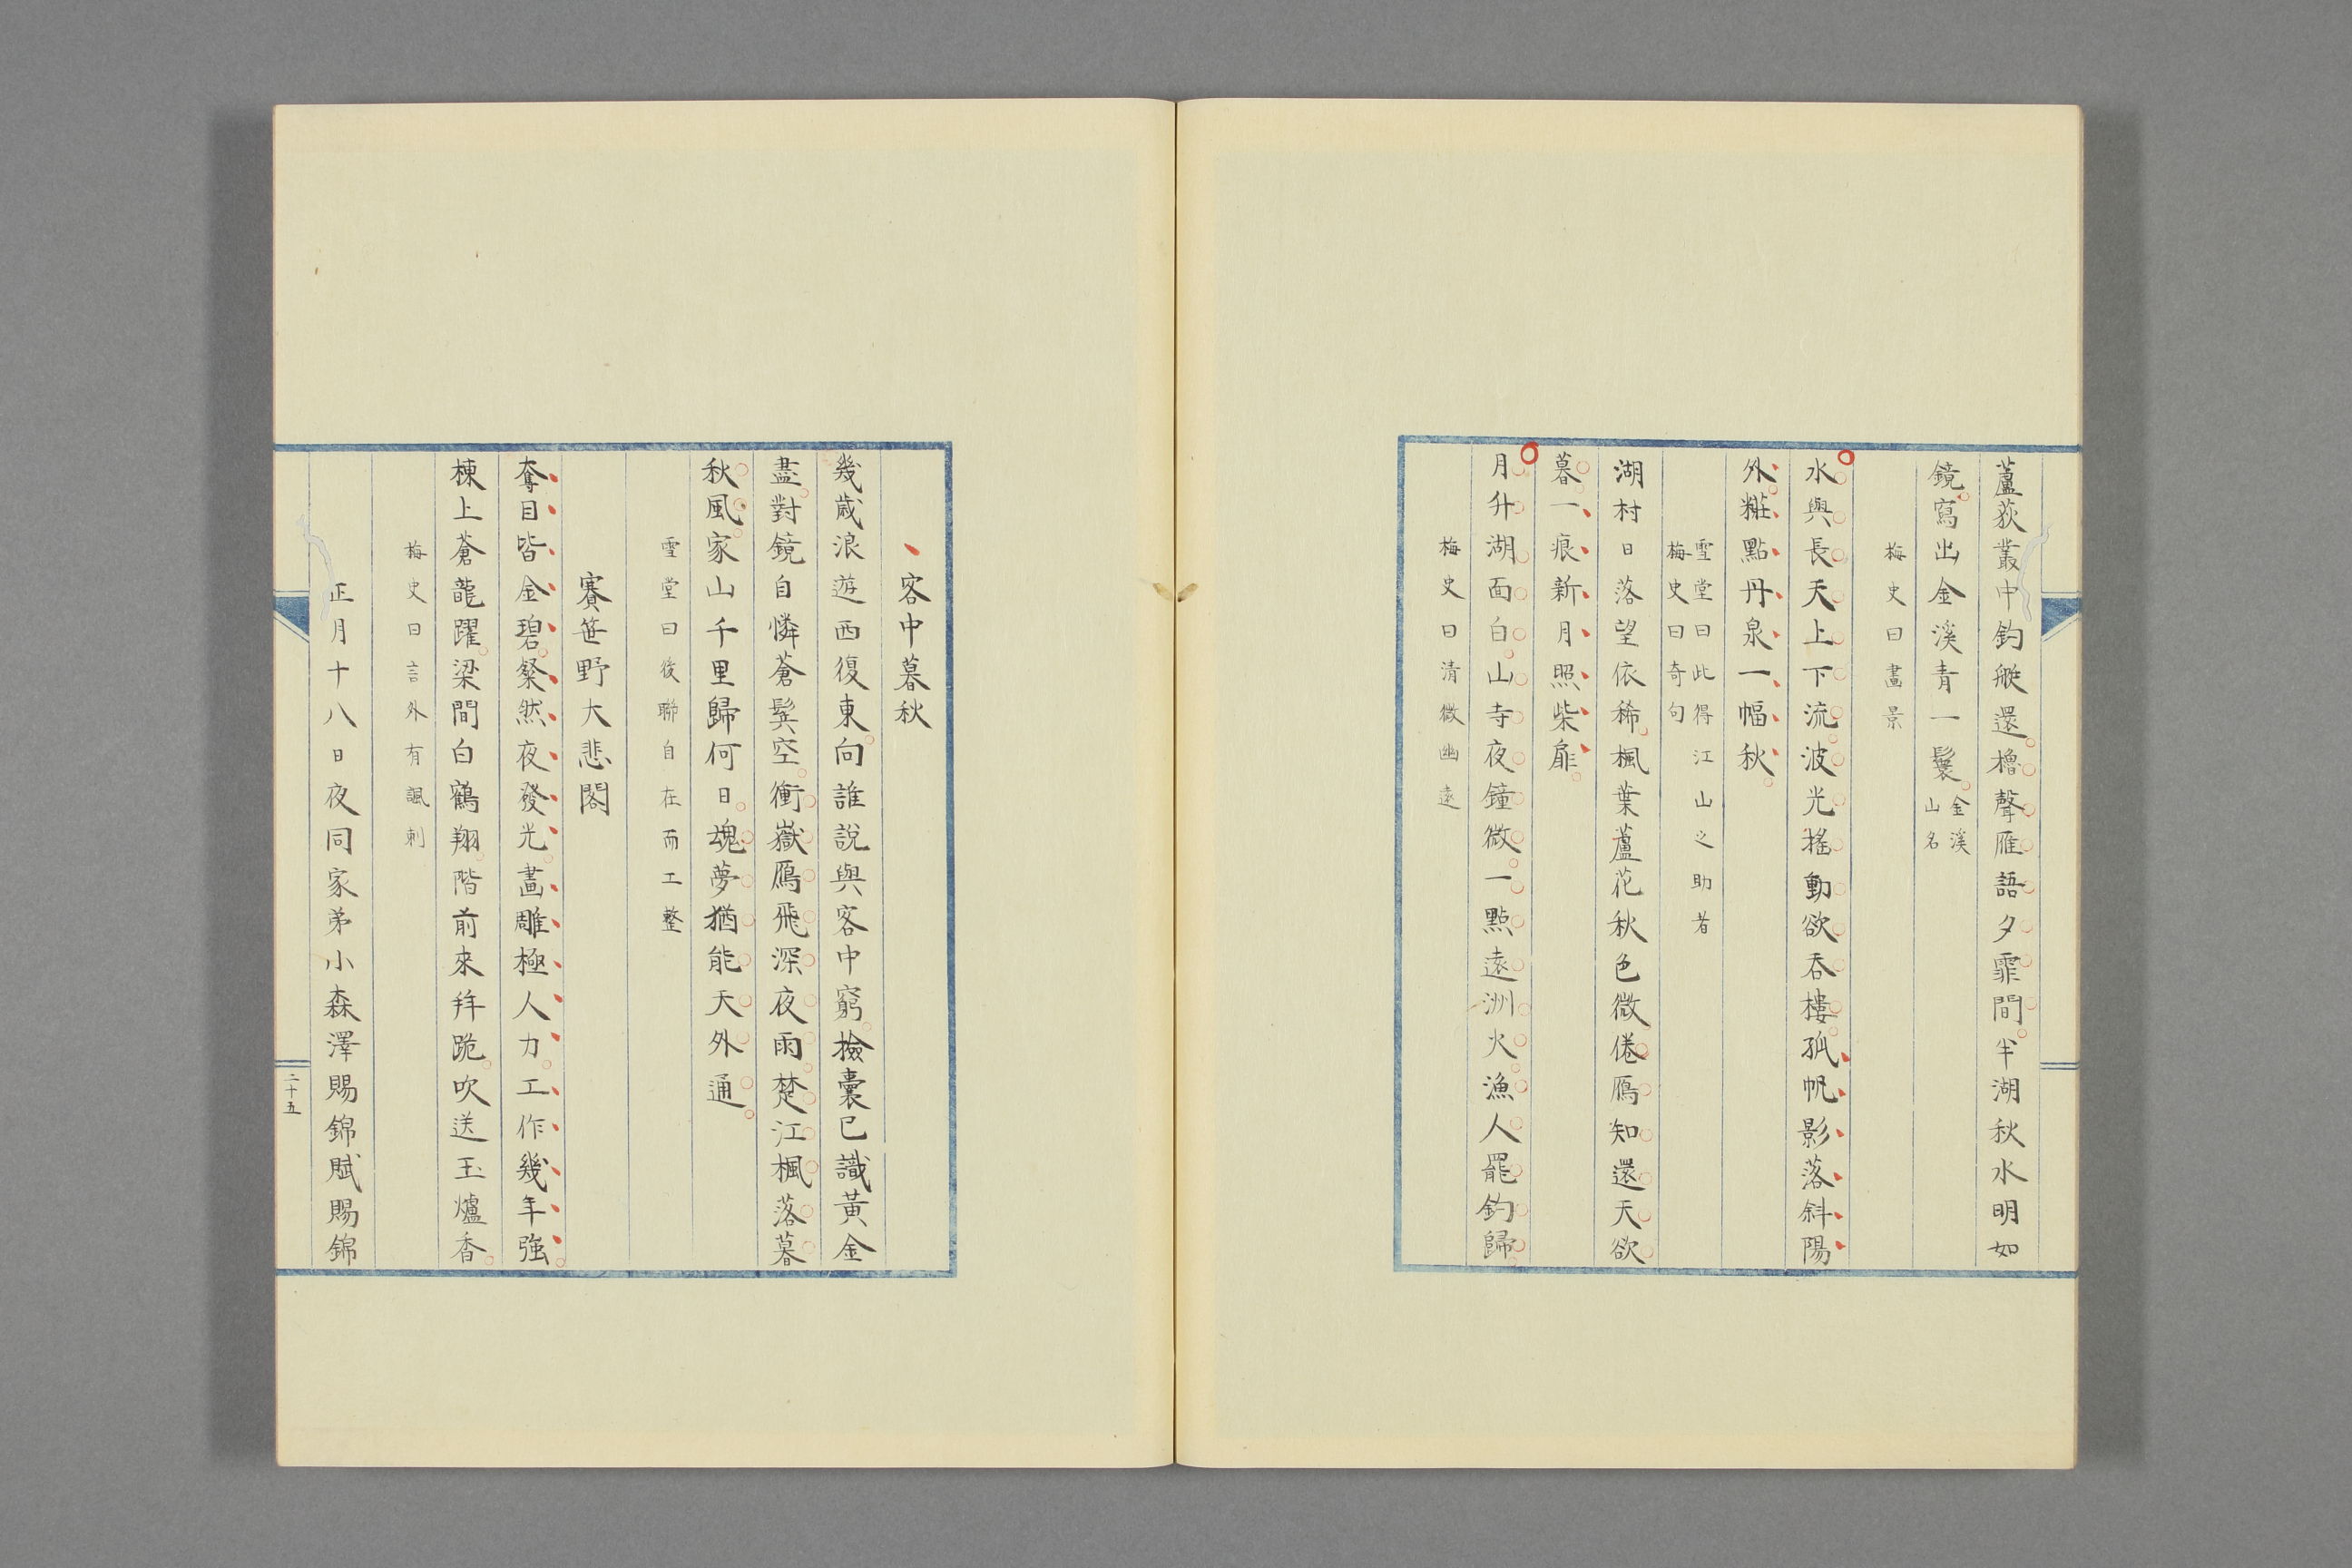 蘆荻叢中釣艇還櫓聲雁語夕霏間半湖秋水明如
鏡寫出金溪青一鬟金溪
山名
梅史曰畫景
水與長天上下流波光搖動欲呑樓孤帆影落斜陽
外糚點丹泉一幅秋
雪堂曰此得江山之助者
梅史曰奇句
湖村日落望依稀楓葉蘆花秋色微倦鴈知還天欲
暮一痕新月照柴扉
月升湖面白山寺夜鐘微一點遠洲火漁人罷釣歸
梅史曰清微幽遠
客中暮秋
幾歳浪遊西復東向誰說與客中窮撿囊已識黃金
盡對鏡自憐蒼鬂空衝嶽鴈飛深夜雨楚江楓落暮
秋風家山千里歸何日魂夢猶能天外通
雪堂曰後聯自在而工整
賽笹野大悲閣
奪目皆金碧粲然夜發光畫雕極人力工作幾年強
棟上蒼龍躍梁間白鶴翔階前來拜跪吹送玉爐香
梅史曰言外有諷刺
正月十八日夜同家弟小森澤賜錦賦賜錦
二十五